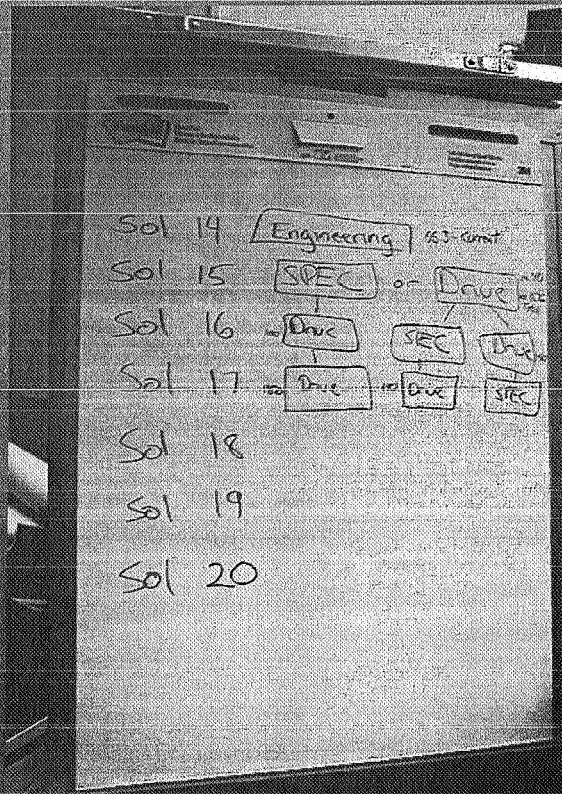 Sol 14 Engineering
Sol 15 SPEC or Drive
Sol 16 Drive SPEC Drive
Sol 17 Drive Drive SPEC
Sol 18
Sol 19
Sol 20